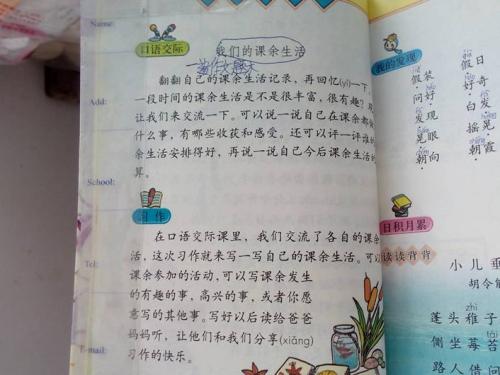 Name:
口语交际
我们的课余生活
翻翻自己的课余生活记录，再回忆(yì)一下，
一段时间的课余生活是不是很丰富，很有趣？现
让我们来交流一下。可以说一说自己在课余都做
什么事，有哪些收获和感受。还可以评一评谁的
余生活安排得好，再说一说自己今后课余生活的
算。
Add:
School:
Tel:
E-mail:
习作
在口语交际课里，我们交流了各自的课余
活，这次习作就来写一写自己的课余生活。可以
课余参加的活动，可以写课余发生
的有趣的事，高兴的事，或者你愿
意写的其他事。写好以后读给爸爸
妈妈听，让他们和我们分享(xiǎng)
习作的快乐。
我的发现
假装
假日
问好
好奇
发现
空白
晃眼
摇晃
朝向
朝霞
日积月累
读读背背
小儿垂
胡令能
蓬头稚子
zhì
侧坐莓苔
路人借问